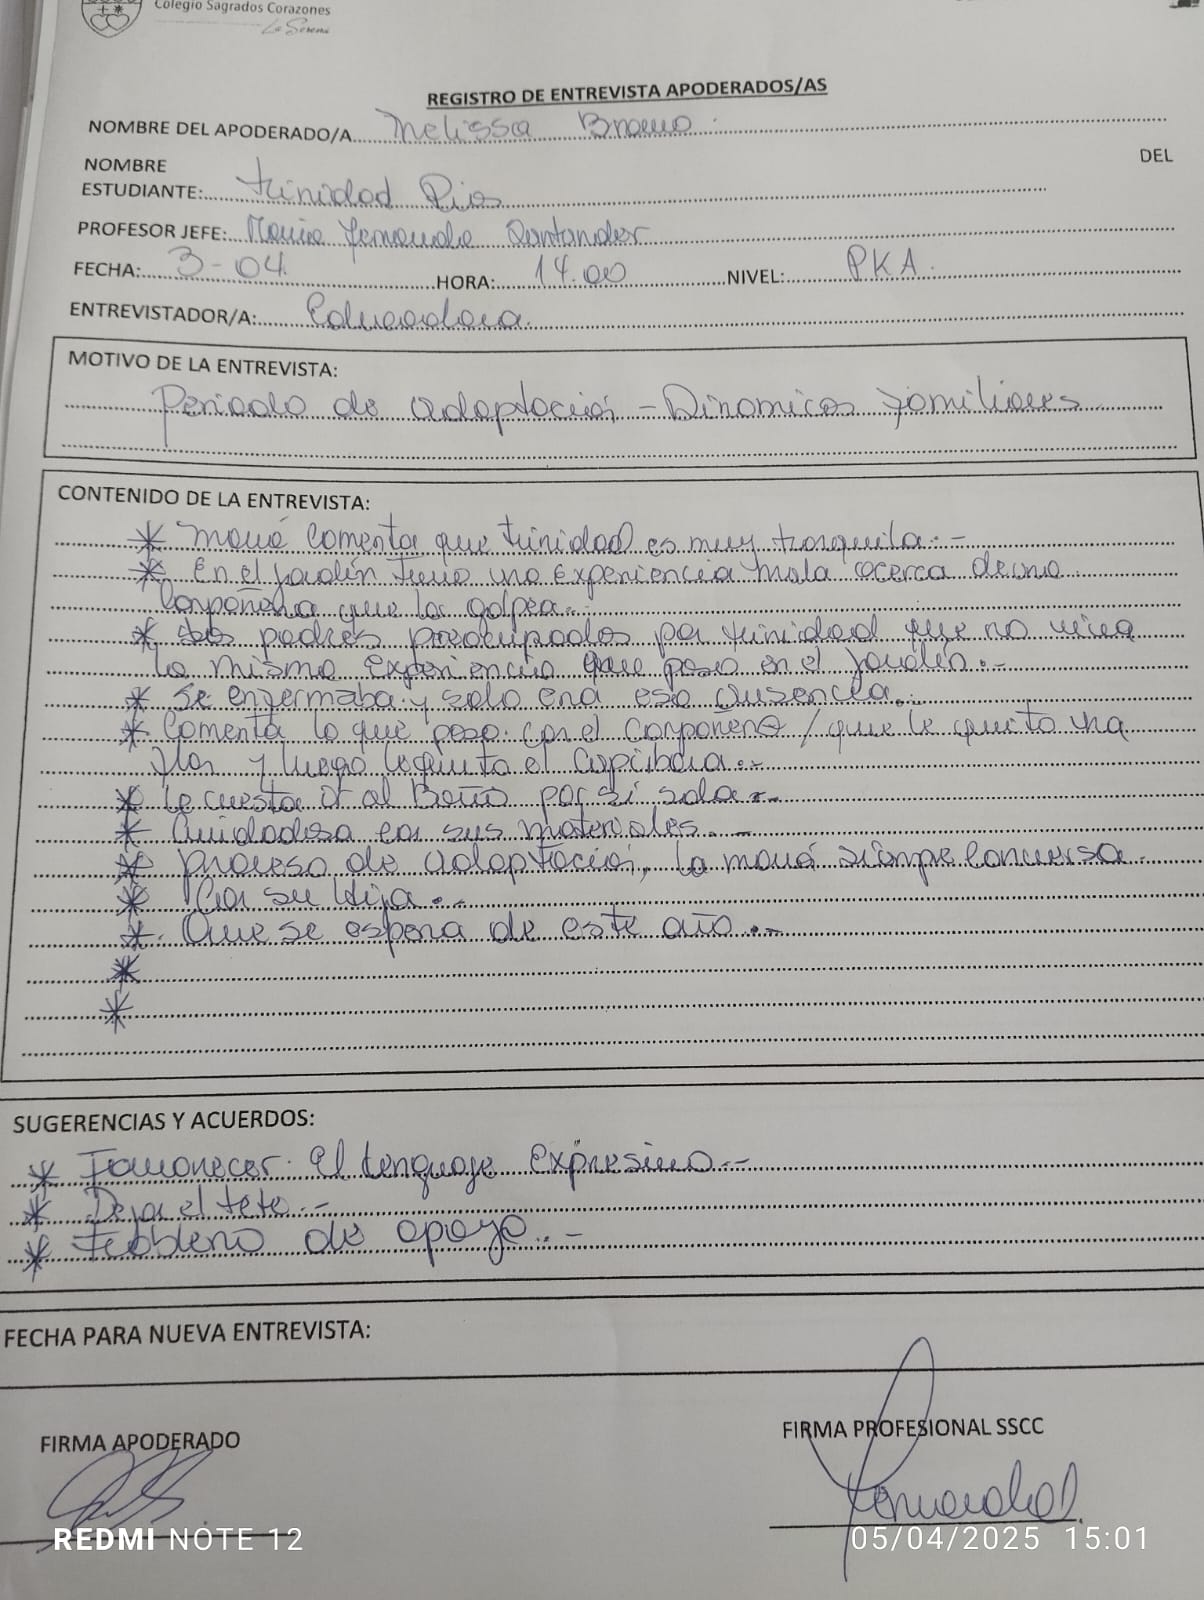 Colegio Sagrados Corazones
La Serena
REGISTRO DE ENTREVISTA APODERADOS/AS
NOMBRE DEL APODERADO/A Melissa Bravo
NOMBRE DEL
ESTUDIANTE: Trinidad Rios
PROFESOR JEFE: Maria Fernanda Santander
FECHA: 3-04. HORA: 14.00 NIVEL: PKA.
ENTREVISTADOR/A: Educadora.
MOTIVO DE LA ENTREVISTA:
Periodo de adaptación - Dinamicas familiares
CONTENIDO DE LA ENTREVISTA:
* mamá comenta que trinidad es muy tranquila.-
* En el jardín tuvo una experiencia mala acerca de una
compañera que la golpea..
* padres preocupados por trinidad que no viva
la misma experiencia que paso en el jardín.-
* Se enfermaba y solo era eso ausencia.
* Comenta lo que paso con el compañero / que le quito una
flor y luego le quito el
* Le cuesta ir al Baño por si sola.-
* Cuidadosa con sus materiales.-
* proceso de adaptación, la mamá siempre conversa
* Con su Hija.-
* Que se espera de este año.-
*
*
SUGERENCIAS Y ACUERDOS:
* el lenguaje expresivo.-
* Dejar el tete.-
* de apoyo.-
FECHA PARA NUEVA ENTREVISTA:
FIRMA APODERADO
FIRMA PROFESIONAL SSCC
REDMI NOTE 12
05/04/2025 15:01